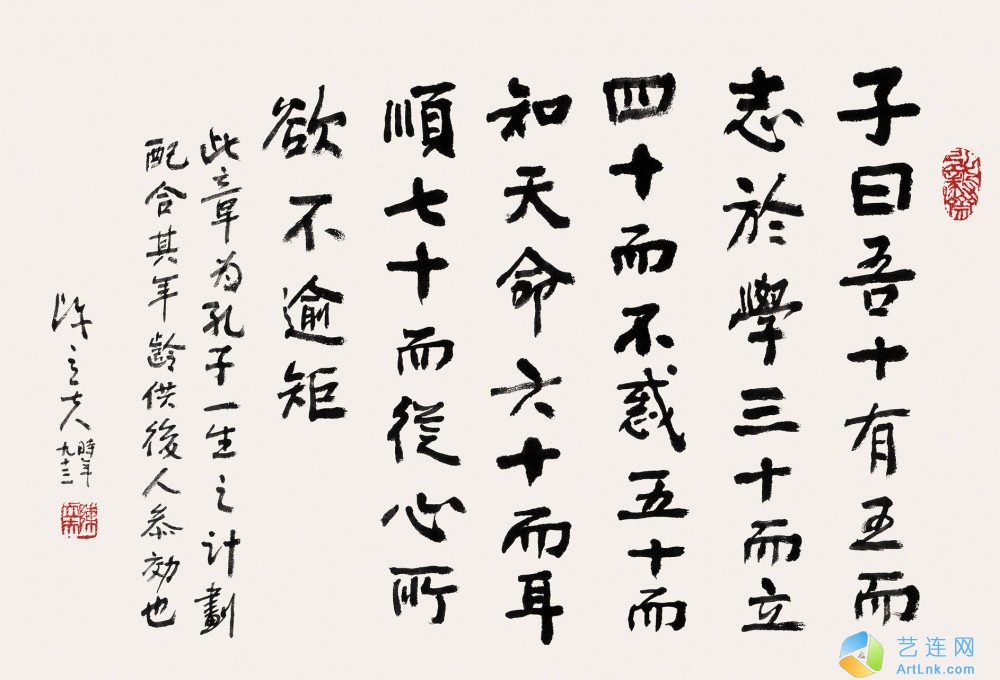 子曰吾十有五而
志於學三十而立
四十而不惑五十而
知天命六十而耳
順七十而從心所
欲不逾矩
此章为孔子一生之计劃
配合其年齡供後人参効也
陈立夫
時年
九十三
艺连网
ArtLnk.com